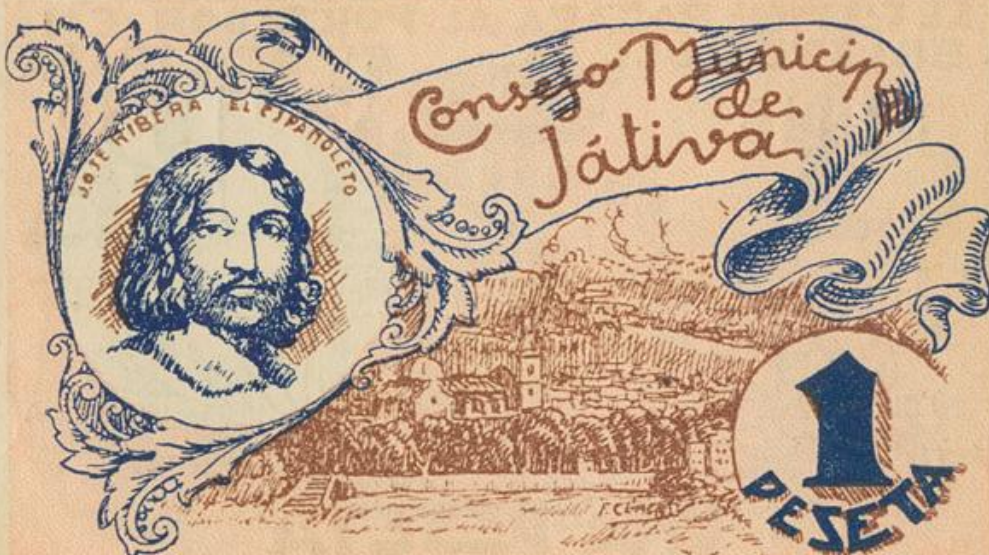 JOSE RIBERA EL ESPAÑOLETO
Consejo Municip
de
Játiva
1
PESETA